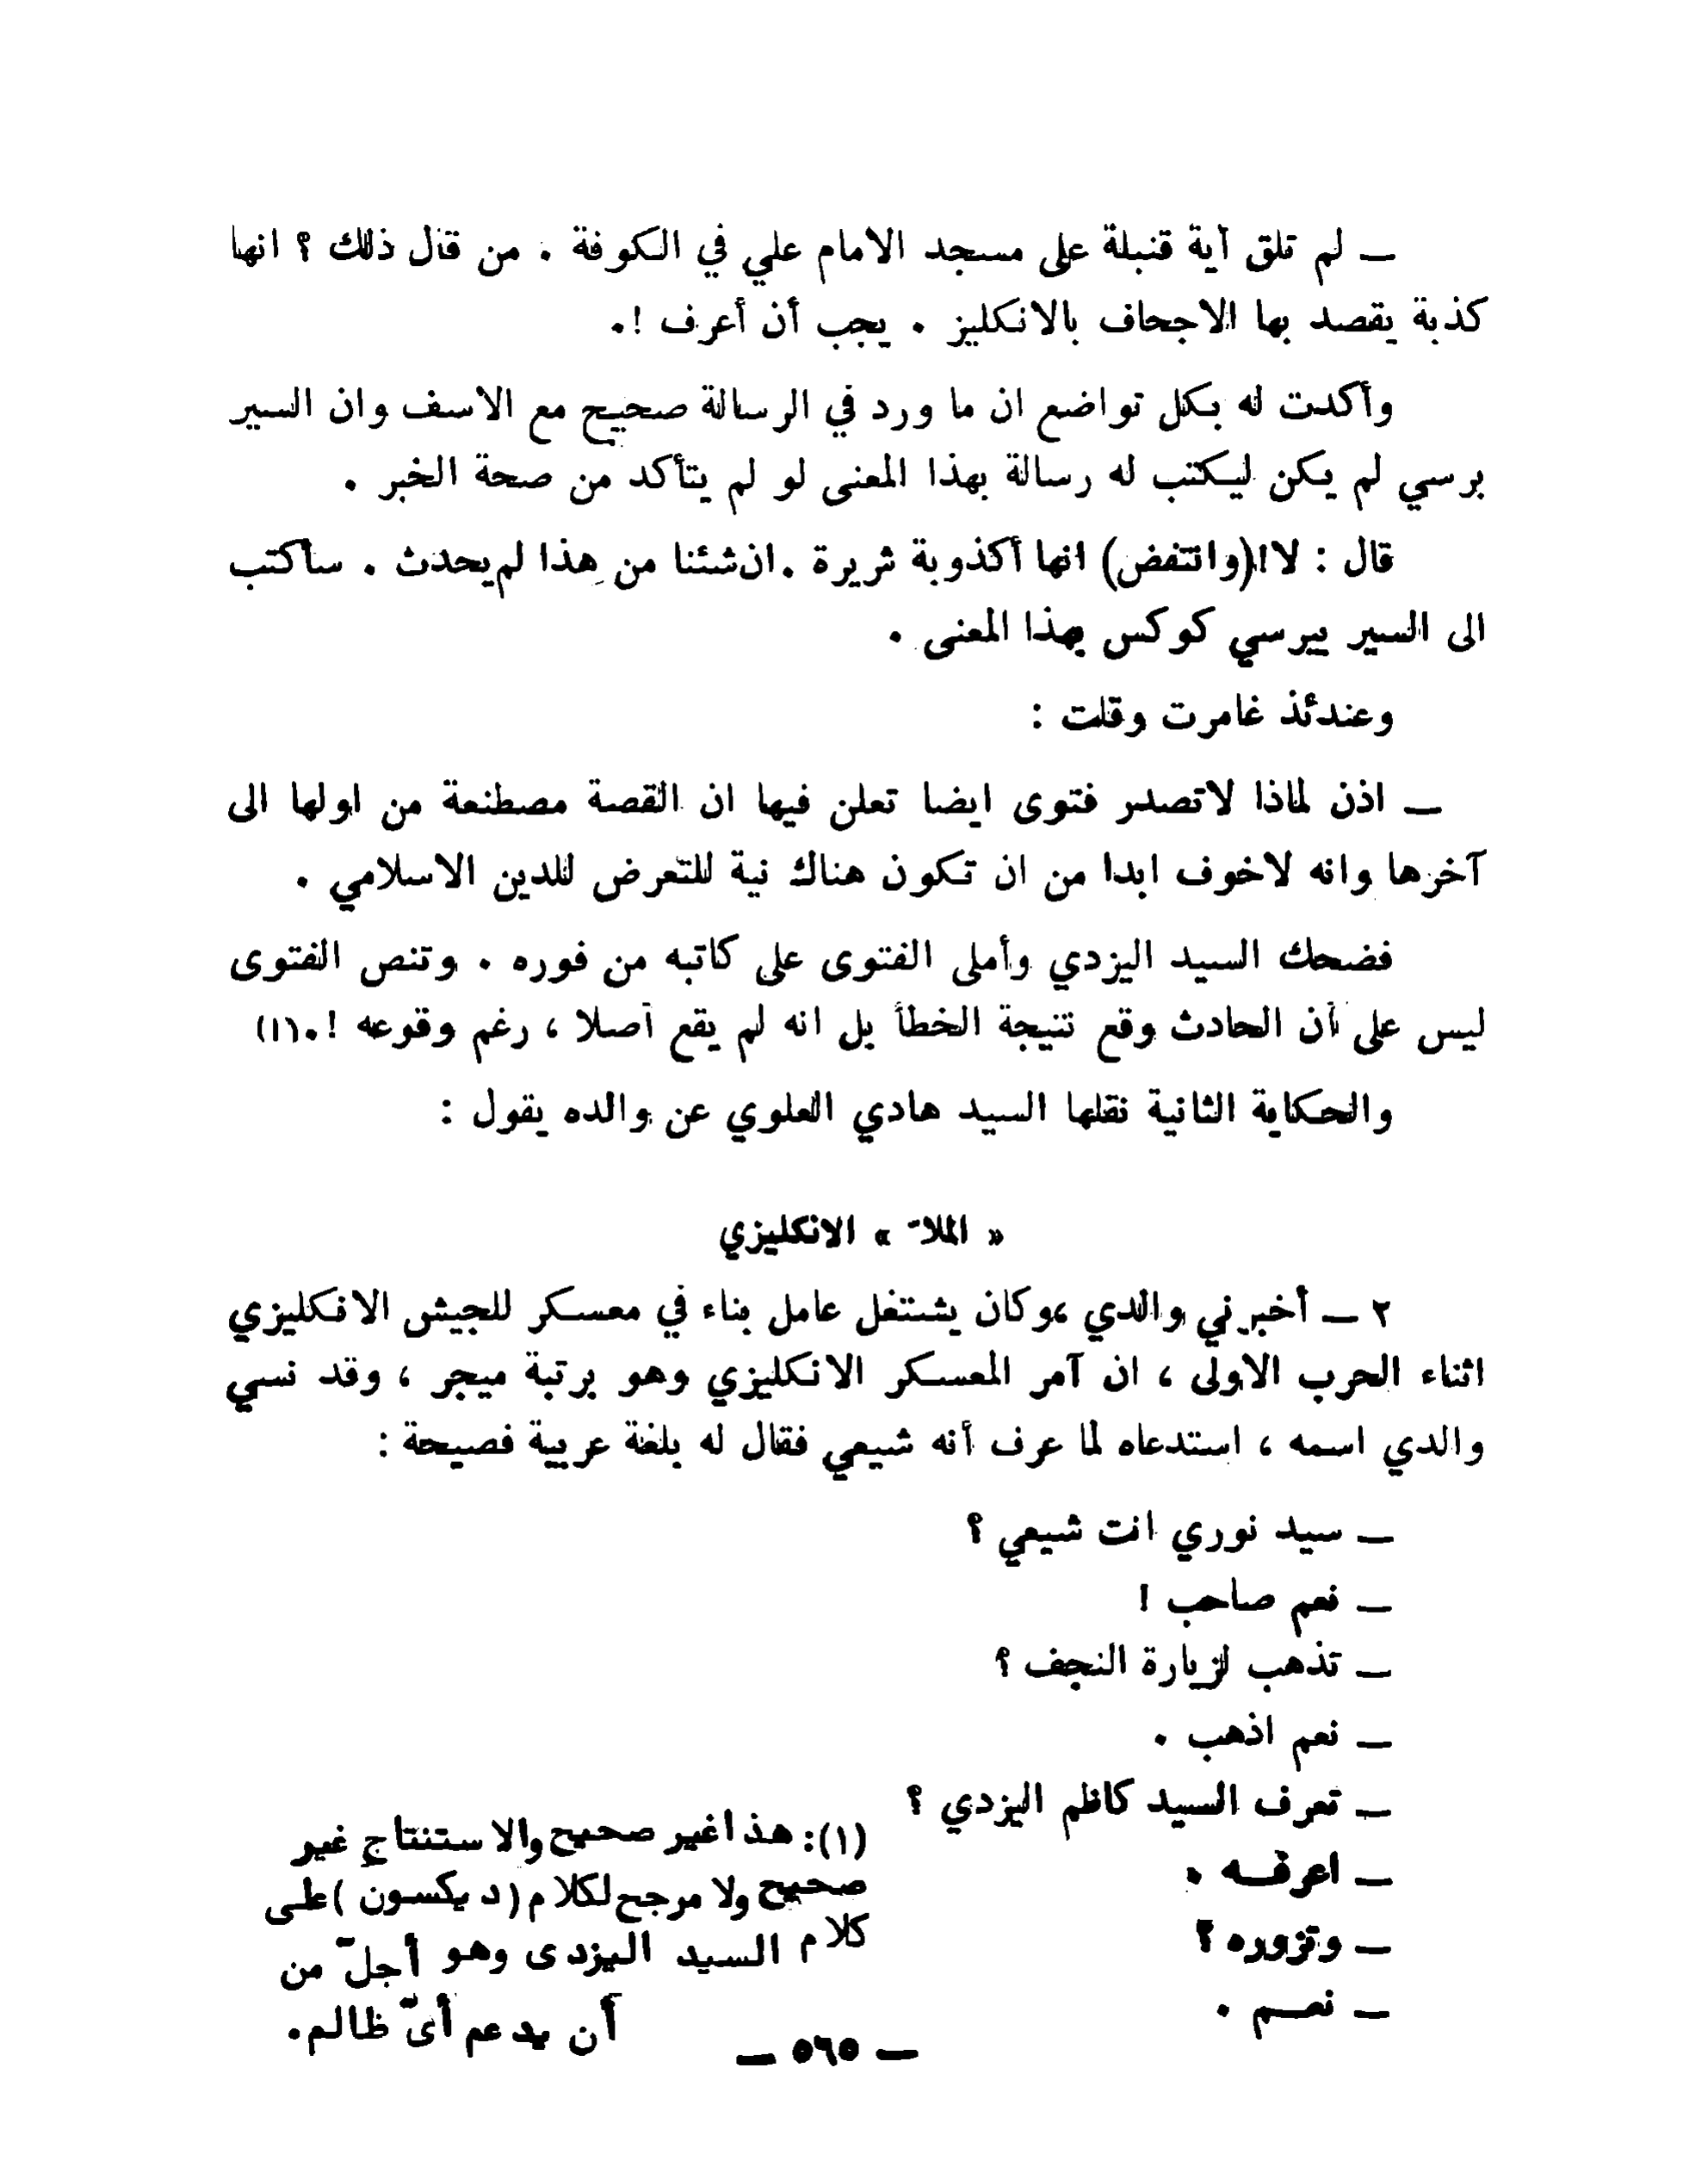 ـ لم تلق أية قنبلة على مسجد الامام علي في الكوفة . من قال ذلك ؟ انها
كذبة يقصد بها الاجحاف بالانكليز . يجب أن أعرف !.
وأكدت له بكل تواضع ان ما ورد في الرسالة صحيح مع الاسف وان السير
برسي لم يكن ليكتب له رسالة بهذا المعنى لو لم يتأكد من صحة الخبر .
قال : لا!(وانتفض) انها أكذوبة شريرة .ان شئنا من هذا لم يحدث . سأكتب
الى السير بيرسي كوكس بهذا المعنى .
وعندئذ غامرت وقلت :
ـ اذن لماذا لاتصدر فتوى ايضا تعلن فيها ان القصة مصطنعة من اولها الى
آخرها وانه لاخوف ابدا من ان تكون هناك نية للتعرض للدين الاسلامي .
فضحك السيد اليزدي وأملى الفتوى على كاتبه من فوره . وتنص الفتوى
ليس على أن الحادث وقع نتيجة الخطأ بل انه لم يقع أصلا ، رغم وقوعه !.(١)
والحكاية الثانية نقلها السيد هادي العلوي عن والده يقول :
« الملا » الانكليزي
٢ ـ أخبرني والدي ،وكان يشتغل عامل بناء في معسكر للجيش الانكليزي
اثناء الحرب الاولى ، ان آمر المعسكر الانكليزي وهو برتبة ميجر ، وقد نسي
والدي اسمه ، استدعاه لما عرف أنه شيعي فقال له بلغة عربية فصيحة :
ـ سيد نوري انت شيعي ؟
ـ نعم صاحب !
ـ تذهب لزيارة النجف ؟
ـ نعم اذهب .
ـ تعرف السيد كاظم اليزدي ؟
ـ اعرفـه .
ـ وتزوره ؟
ـ نعـم .
(١): هذا غير صحيح والاستنتاج غير
صحيح ولا مرجح لكلام (ديكسون) على
كلام السيد اليزدى وهو أجلّ من
أن يدعم أىّ ظالم.
ـ ٥٦٥ ـ